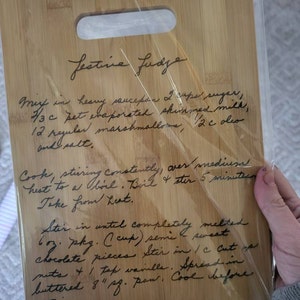 Festive Fudge
Mix in heavy saucepan 2 cups sugar,
2/3 c pet evaporated skimmed milk,
12 regular marshmallows, 1/2 c oleo
and salt.
Cook, stirring constantly, over medium
heat to a boil. Boil & stir 5 minutes
Take from heat.
Stir in until completely melted
6 oz. pkg. (1 cup) semi sweet
chocolate pieces. Stir in 1 c cut up
nuts & 1 tsp vanilla. Spread in
buttered 8" sq. pan. Cool before